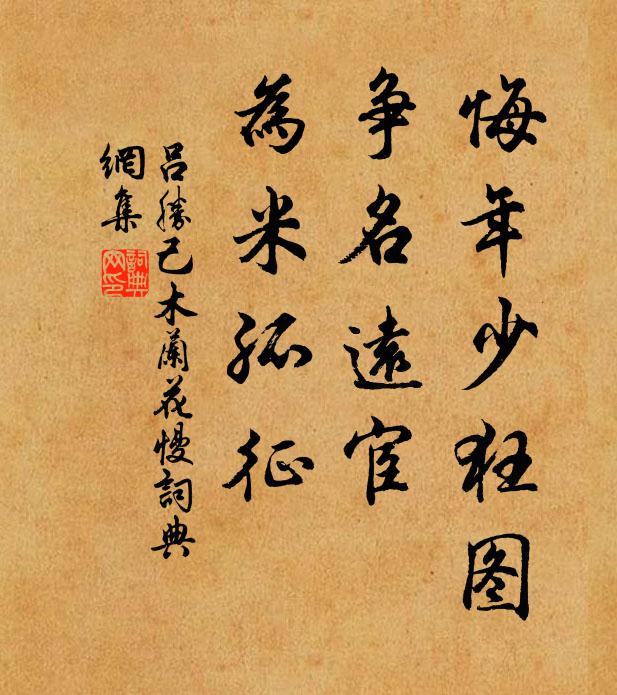 悔年少狂图
争名遠宦
為米孤征
呂勝己木蘭花慢詞典
網集
詞典
网印